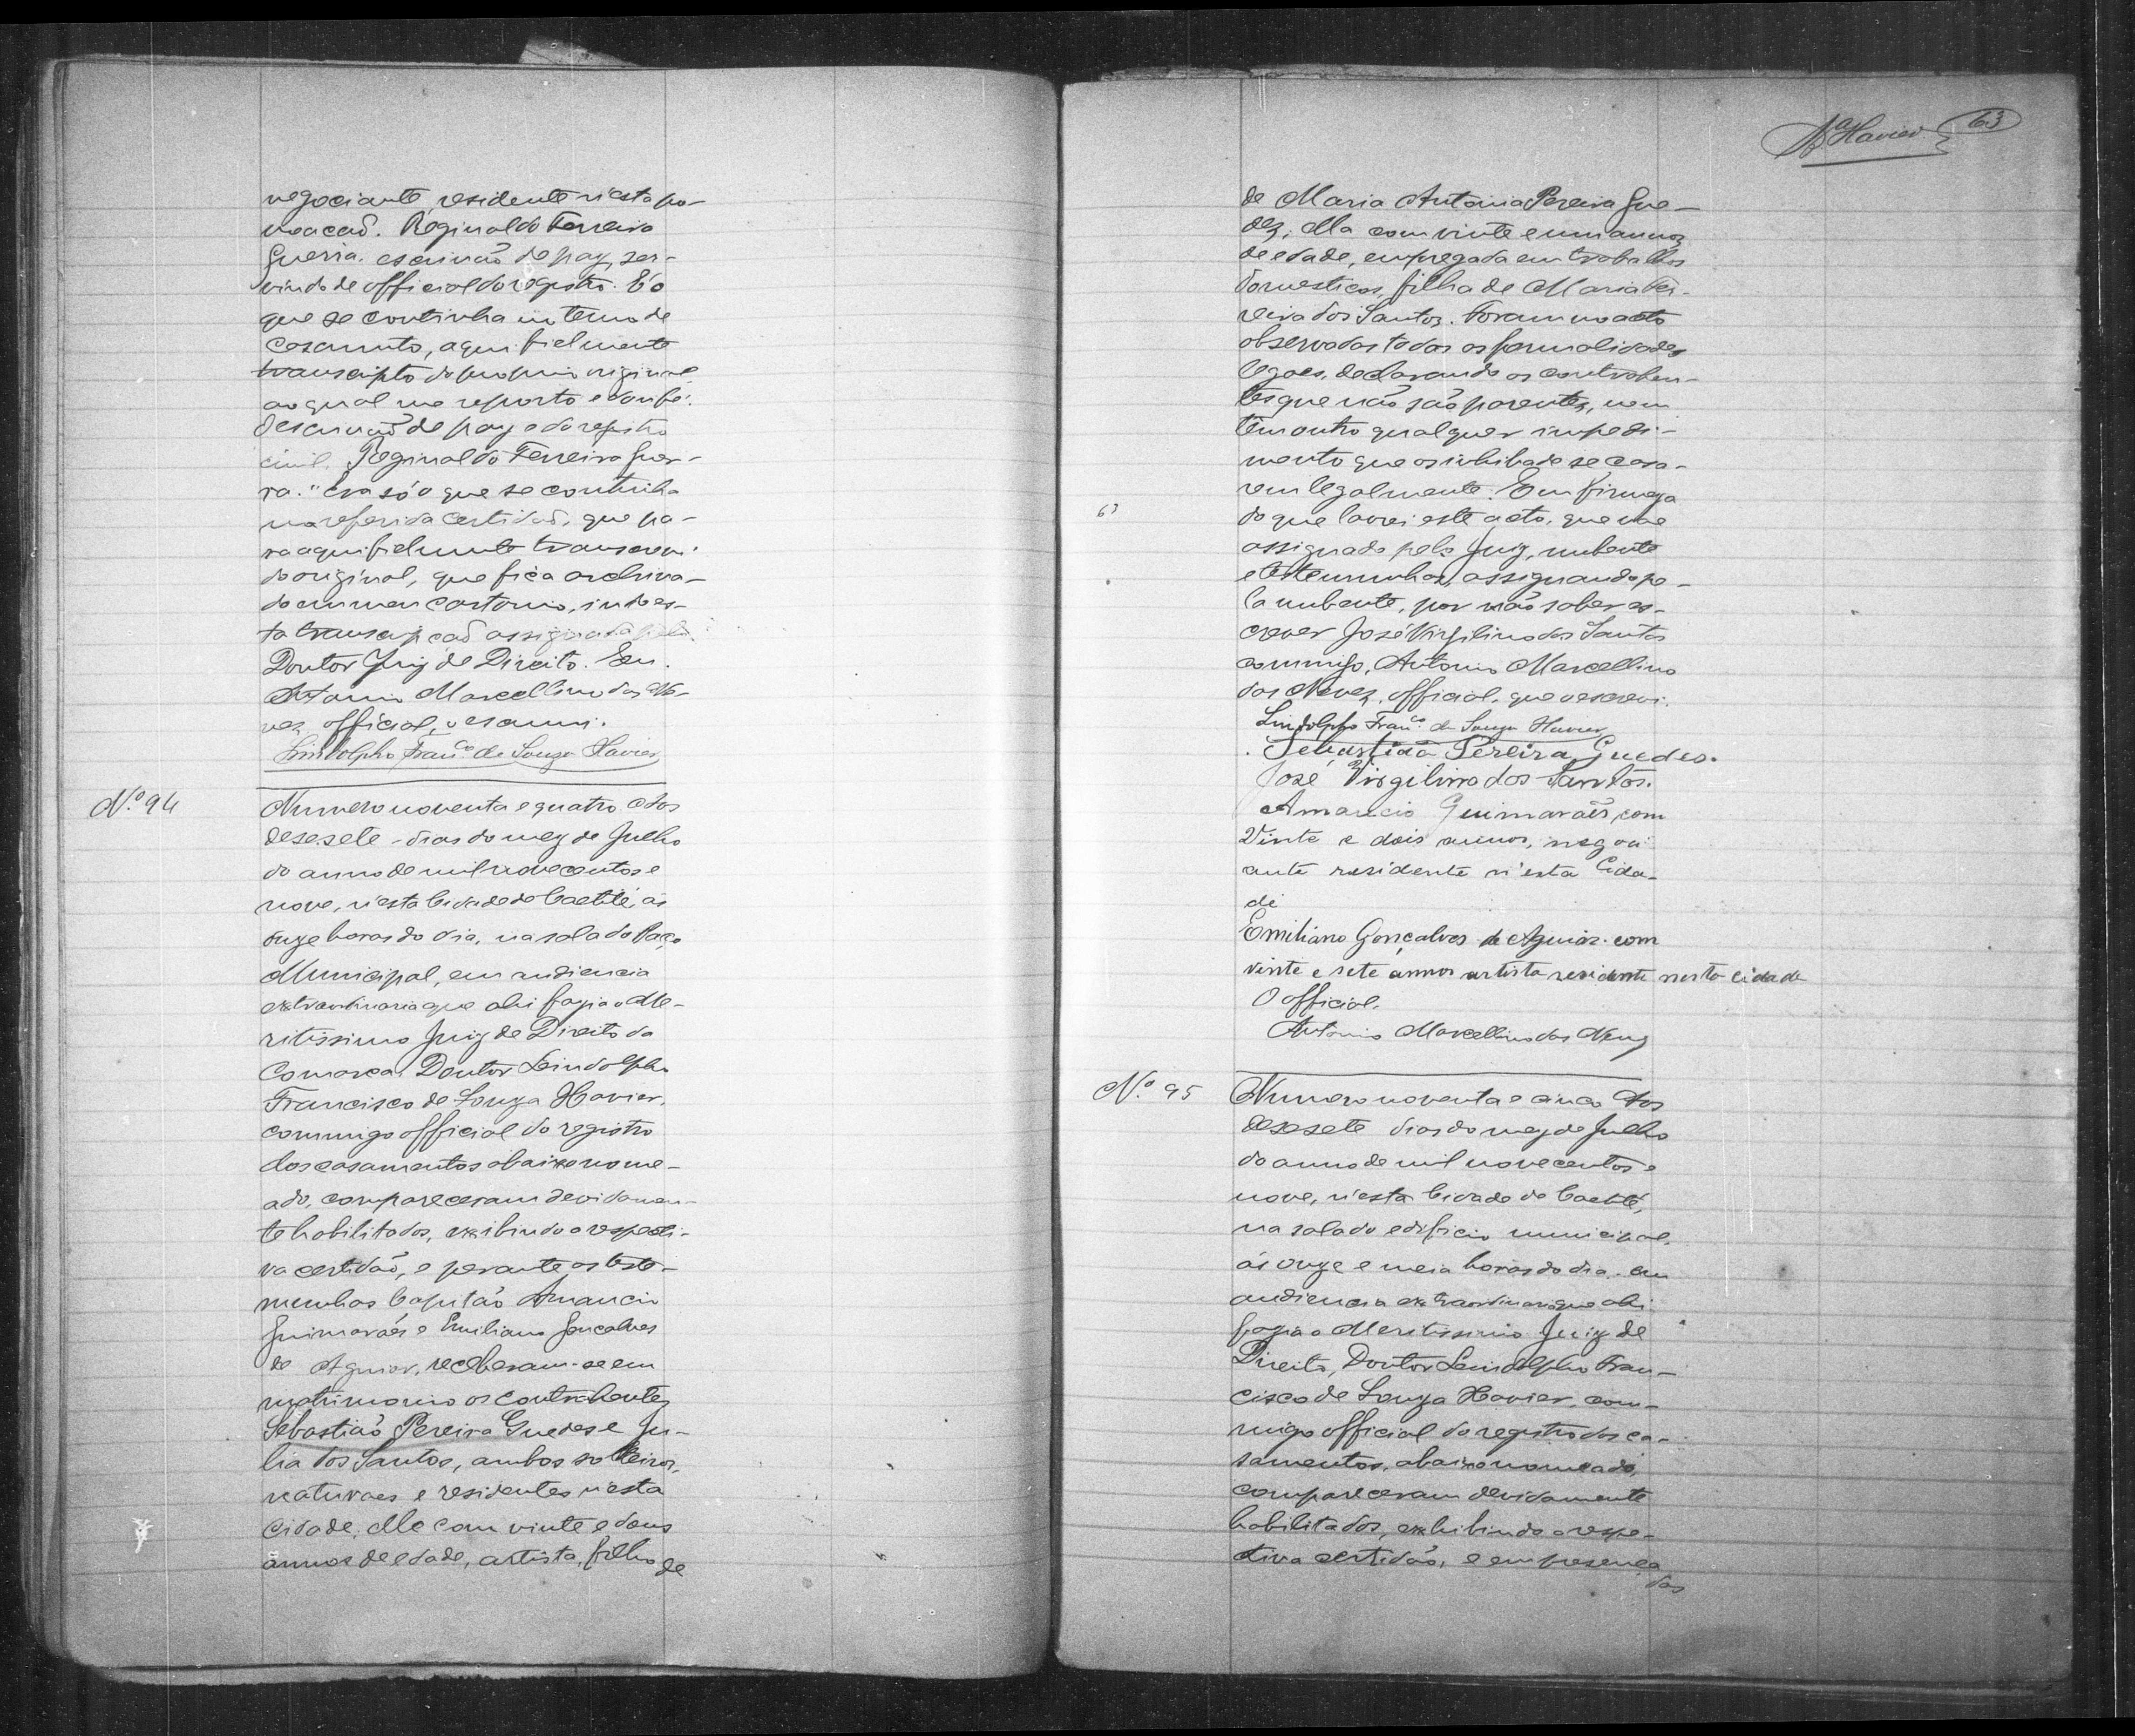 negociante, residente n'esta po-
voacaõ. Reginaldo Ferreira
Guerra. escrivaõ de paz, ser-
vindo de official do registro. E o
que se continha no termo de
casamento, aqui fielmente
transcripto do proprio original
ao qual me reporto e dou fé.
O escrivaõ de paz e do registro
civil. Reginaldo Ferreira Guer-
ra." Era só o que se continha
na referida certidaõ, que pa-
ra aqui fielmente transcrevi
do original, que fica archiva-
do em meu cartorio, indo es-
ta transcripçaõ assignada pelo
Doutor Juiz de Direito. Eu.
Antonio Marcellino das Ne-
ves, official, o escrevi.
Lindolpho Franco de Souza Xavier
Nº 94
Numero noventa e quatro. Aos
desesete dias do mez de Julho
do anno de mil novecentos e
nove, n'esta Cidade de Caetité, ás
onze horas do dia, na sala do Paço
Municipal, em audiencia
extraordinaria que ahi fazia o Me-
ritissimo Juiz de Direito da
Comarca, Doutor Lindolpho
Francisco de Souza Xavier,
commigo official do registro
dos casamentos abaixo nome-
ado, compareceram devidamen-
te habilitados, exibindo a respecti-
va certidaõ, e perante as teste-
munhas Capitaõ Amancio
Guimarães e Emiliano Goncalves
de Aguiar, receberam-se em
matrimonio os contrahentes
Sebastiaõ Pereira Guedes e Ju-
lia dos Santos, ambos solteiros,
naturaes e residentes n'esta
cidade, elle com vinte e dous
annos de edade, artista, filho de
Xavier 63
de Maria Antonia Pereira Gue-
des; ella com vinte e um annos
de edade, empregada em trabalhos
domesticos, filha de Maria Pe-
reira dos Santos. Foram no acto
observadas todas as formalidades
legaes, declarando os contrahen-
tes que não são parentes, nem
têm outro qualquer impedi-
mento que os inhiba de se casa-
rem legalmente. E em firmeza
63
do que lavrei este acto, que vae
assignado pelo Juiz, nubente
e testemunhas, assignando pe-
la nubente, por não saber es-
crever José Virgilino dos Santos
commigo, Antonio Marcellino
das Neves, official, que o escrevi.
Lindolpho Franco de Souza Xavier
Sebastião Pereira Guedes.
José Virgilino dos Santos.
Amancio Guimarães, com
Vinte e dois annos, negoci
ante residente n'esta Cida-
de
Emiliano Gonçalves de Aguiar. com
vinte e sete annos artista residente nesta cidade
O official.
Antonio Marcellino das Neves
Nº 95
Numero noventa e cinco. Aos
desesete dias do mez de Julho
do anno de mil novecentos e
nove, n'esta Cidade de Caetité,
na sala do edificio municipal,
ás onze e meia horas do dia, em
audiencia extraordinaria que ahi
fazia o Meritissimo Juiz de
Direito, Doutor Lindolpho Fran-
cisco de Souza Xavier, com-
migo official do registro dos ca-
samentos, abaixo nomeado,
compareceram devidamente
habilitados, exhibindo a respe-
ctiva certidão, e em presença
das